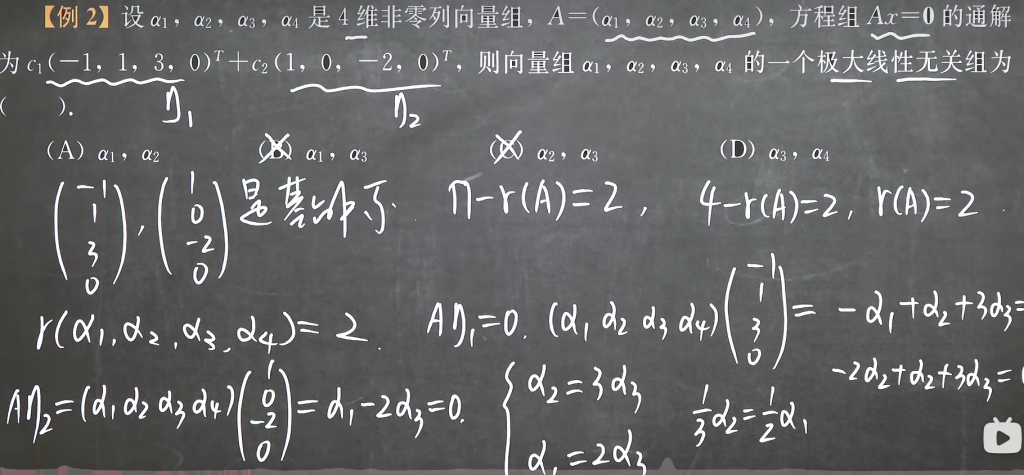 【例2】设α₁，α₂，α₃，α₄是4维非零列向量组，A=(α₁，α₂，α₃，α₄)，方程组Ax=0的通解
为c₁(−1，1，3，0)ᵀ+c₂(1，0，−2，0)ᵀ，则向量组α₁，α₂，α₃，α₄的一个极大线性无关组为
(　　).
η₁ η₂
(A) α₁，α₂ (B) α₁，α₃ (C) α₂，α₃ (D) α₃，α₄
(−1 1 3 0), (1 0 −2 0) 是基础解系. n−r(A)=2, 4−r(A)=2, r(A)=2.
r(α₁,α₂,α₃,α₄)=2. Aη₁=0. (α₁ α₂ α₃ α₄)(−1 1 3 0)= −α₁+α₂+3α₃=
−2α₂+α₂+3α₃=
Aη₂=(α₁ α₂ α₃ α₄)(1 0 −2 0)=α₁−2α₃=0. { α₂=3α₃ 1/3α₂=1/2α₁
α₁=2α₃